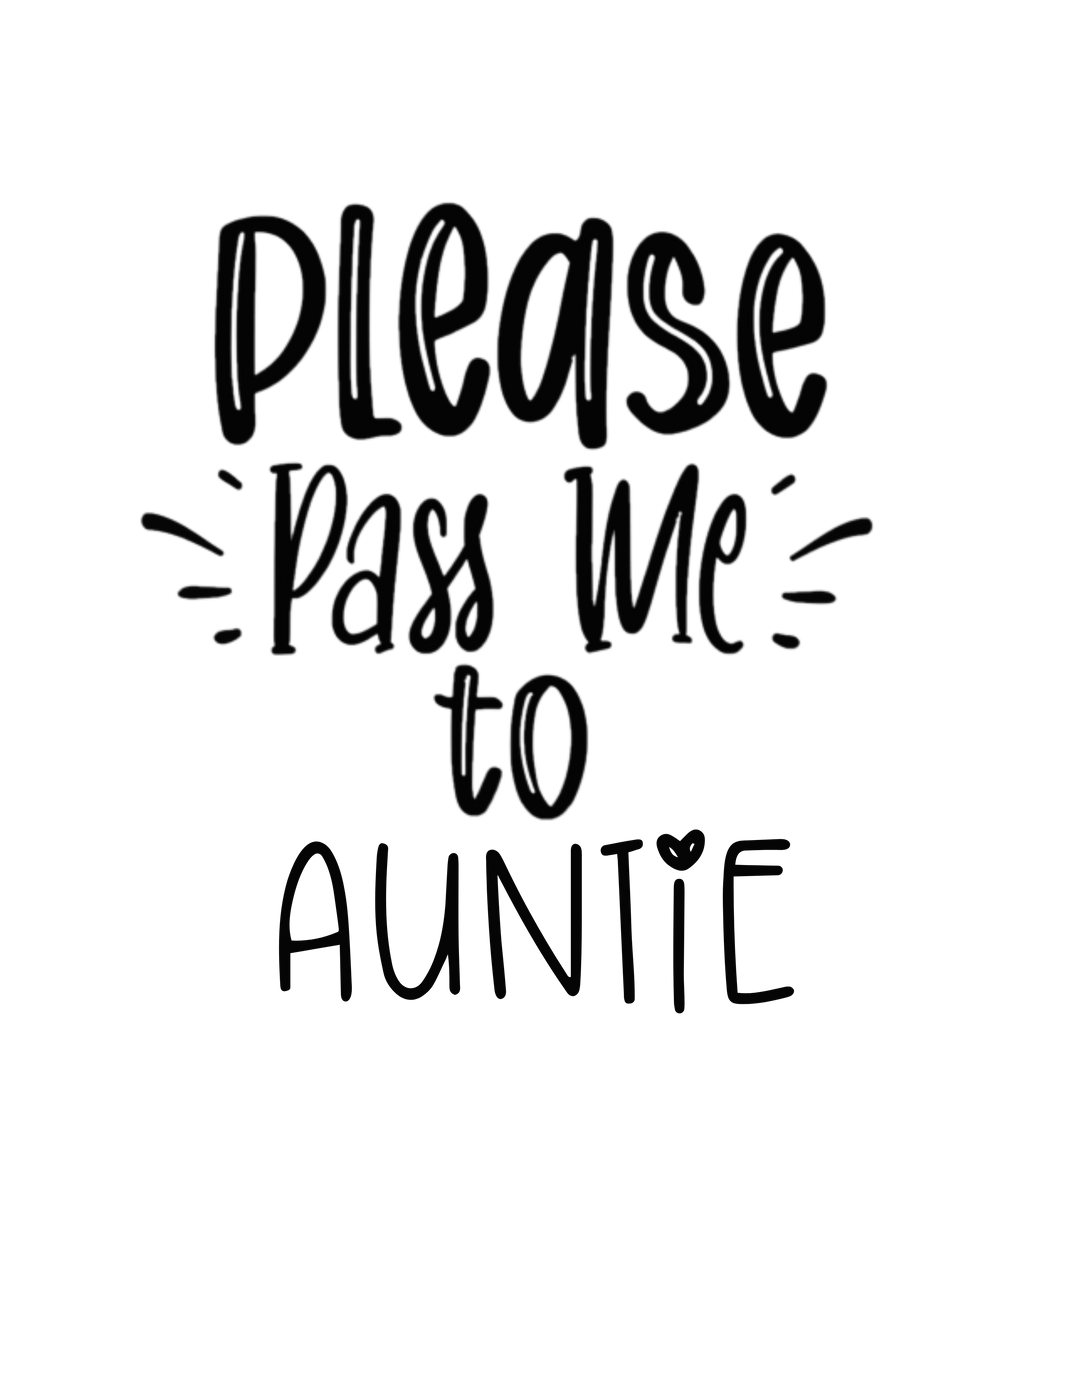 Please
Pass Me
to
AUNTiE